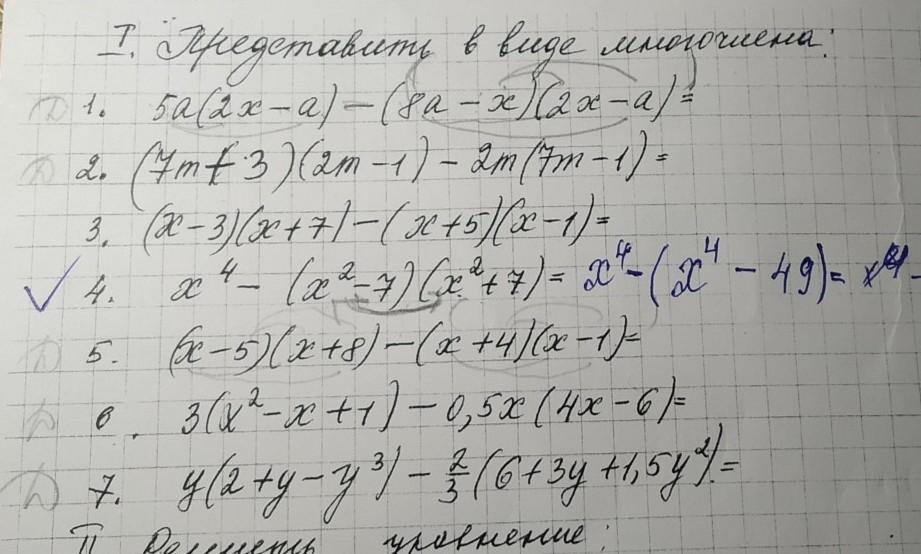 I. Представить в виде многочлена:
1. 5a(2x-a)-(8a-x)(2x-a)=
2. (7m+3)(2m-1)-2m(7m-1)=
3. (x-3)(x+7)-(x+5)(x-1)=
4. x⁴-(x²-7)(x²+7)= x⁴-(x⁴-49)= x⁴-
5. (x-5)(x+8)-(x+4)(x-1)=
6. 3(x²-x+1)-0,5x(4x-6)=
7. y(2+y-y³)-2/3(6+3y+1,5y²)=
II Решить уравнение: